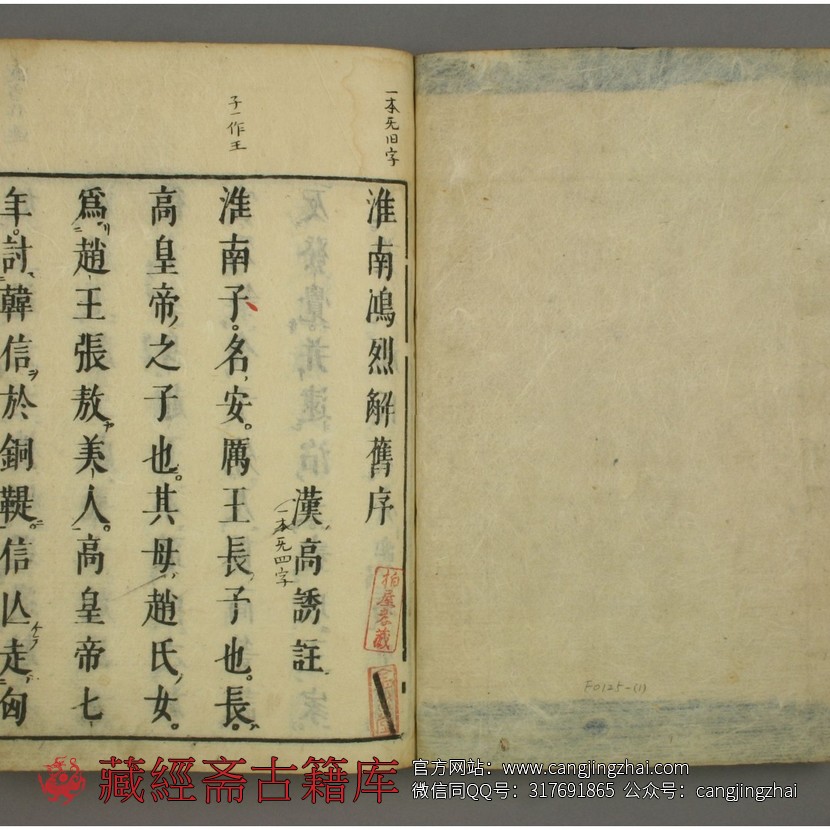 一本无旧字
淮南鴻烈解舊序
漢高誘註
一本无四字
子一作王
淮南子。名安。厲王長子也。長。
高皇帝之子也。其母趙氏女。
爲趙王張敖美人。高皇帝七
年。討韓信於銅鞮。信亾走匈
柏屋老蔵
F0125-(1)
藏經斋古籍库
官方网站：www.cangjingzhai.com
微信同QQ号：317691865 公众号：cangjingzhai